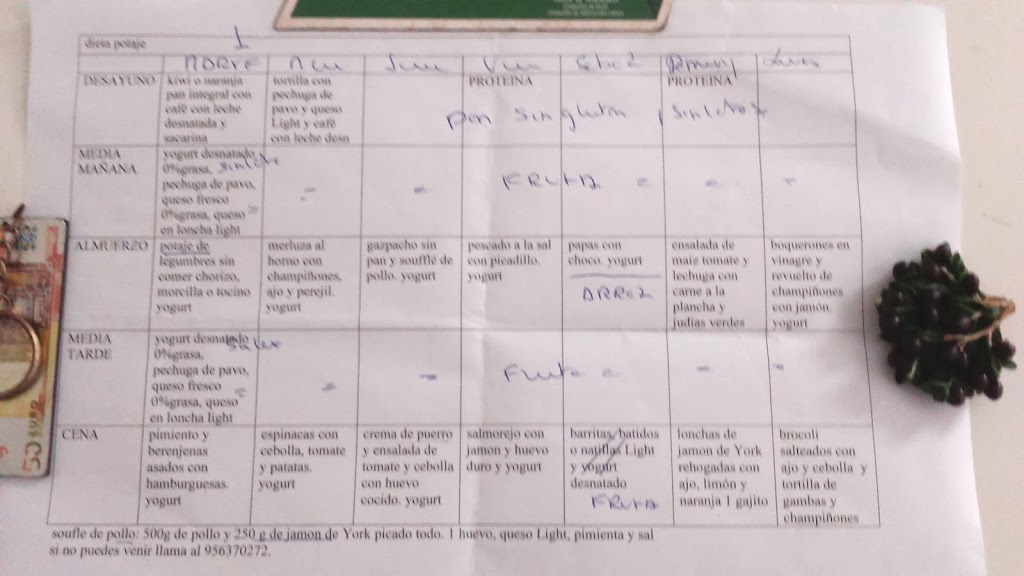 dieta potaje 1
DESAYUNO
kiwi o naranja
pan integral con
café con leche
desnatada y
sacarina
tortilla con
pechuga de
pavo y queso
Light y café
con leche desn
PROTEINA
PROTEINA
pan sin gluten
MEDIA
MAÑANA
yogurt desnatado
0%grasa,
pechuga de pavo,
queso fresco
0%grasa, queso
en loncha light
FRUTA
ALMUERZO
potaje de
legumbres sin
comer chorizo,
morcilla o tocino
yogurt
merluza al
horno con
champiñones,
ajo y perejil.
yogurt
gazpacho sin
pan y soufflé de
pollo. yogurt
pescado a la sal
con picadillo.
yogurt
papas con
choco. yogurt
ARROZ
ensalada de
maiz tomate y
lechuga con
carne a la
plancha y
judias verdes
boquerones en
vinagre y
revuelto de
champiñones
con jamón.
yogurt
MEDIA
TARDE
yogurt desnatado
0%grasa,
pechuga de pavo,
queso fresco
0%grasa, queso
en loncha light
Fruta
CENA
pimiento y
berenjenas
asados con
hamburguesas.
yogurt
espinacas con
cebolla, tomate
y patatas.
yogurt
crema de puerro
y ensalada de
tomate y cebolla
con huevo
cocido. yogurt
salmorejo con
jamon y huevo
duro y yogurt
barritas/batidos
o natillas Light
y yogurt
desnatado
FRUTA
lonchas de
jamon de York
rehogadas con
ajo, limón y
naranja 1 gajito
brocoli
salteados con
ajo y cebolla y
tortilla de
gambas y
champiñones
soufle de pollo: 500g de pollo y 250 g de jamon de York picado todo. 1 huevo, queso Light, pimienta y sal
si no puedes venir llama al 956370272.
50 EURO